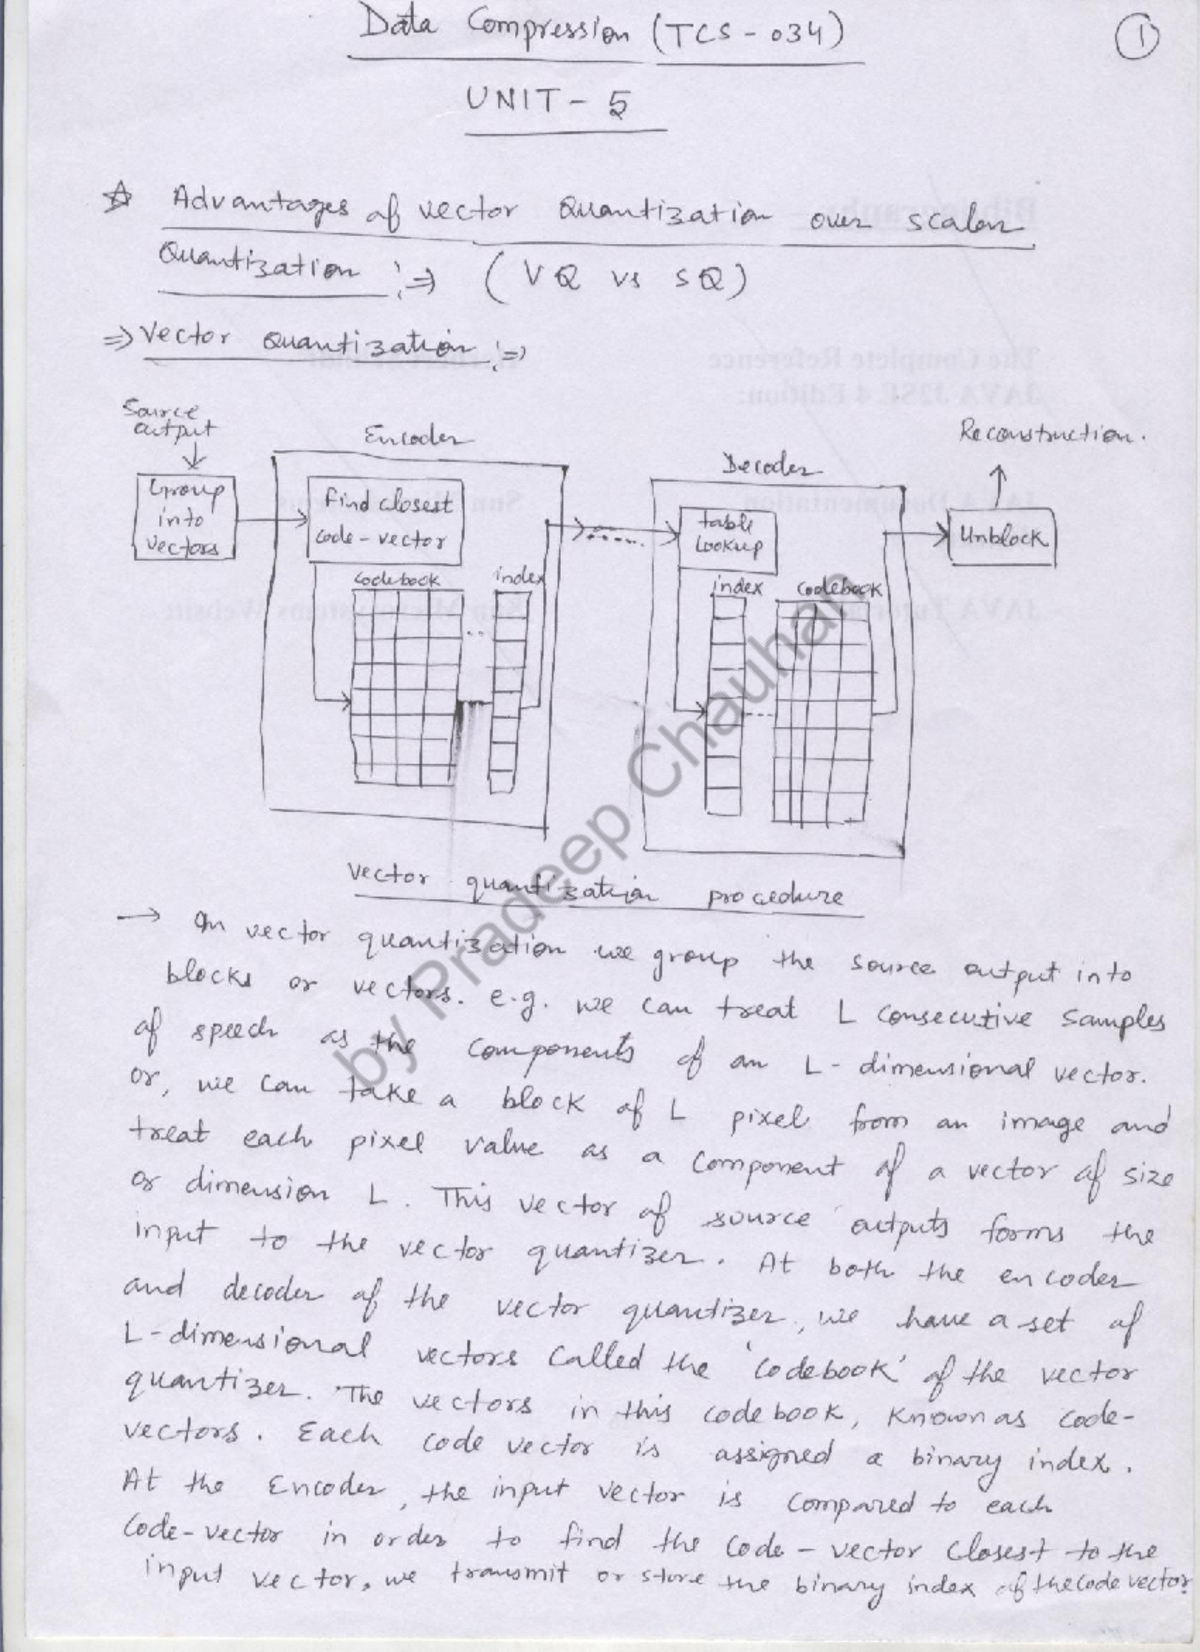 Data Compression (TCS-034)
1
UNIT-5
☆ Advantages of vector Quantization over scalar
Quantization :⇒ (VQ vs SQ)
⇒ Vector Quantization :⇒
Source output
Encoder
Decoder
Reconstruction.
Group into vectors
find closest code-vector
table Lookup
Unblock
codebook
index
index
codebook
vector quantization procedure
→ In vector quantization we group the source output into
blocks or vectors. e.g. we can treat L consecutive samples
of speech as the components of an L-dimensional vector.
or, we can take a block of L pixel from an image and
treat each pixel value as a component of a vector of size
or dimension L. This vector of source outputs forms the
input to the vector quantizer. At both the encoder
and decoder of the vector quantizer, we have a set of
L-dimensional vectors called the 'codebook' of the vector
quantizer. The vectors in this codebook, known as code-
vectors. Each code vector is assigned a binary index.
At the Encoder, the input vector is compared to each
code-vector in order to find the code-vector closest to the
input vector, we transmit or store the binary index of the code vector.
by Pradeep Chauhan